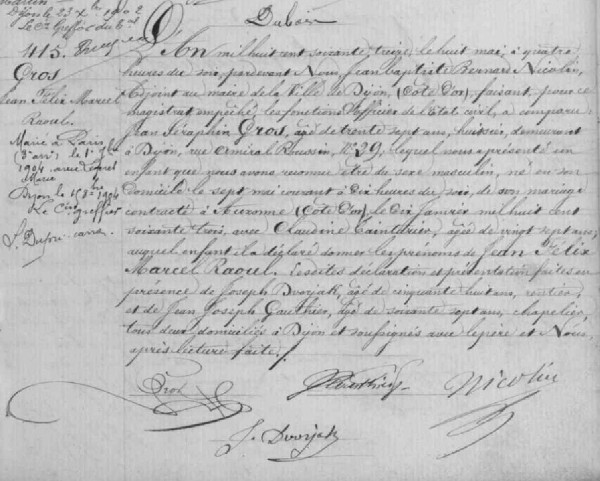 Dijon le 23 X.bre 1902
Le C.is Greffier du
Dubois
415.
Gros
Jean Félix Marcel
Raoul.
Marié à Paris
(3e arr)
1904 avec
Marie
Dijon le
1904
Le C.is greffier
L'An mil huit cent soixante treize, le huit mai, à quatre
heures du soir, pardevant Nous, Jean Baptiste Bernard Nicolin,
Adjoint au maire de la Ville de Dijon, (Côte d'or) faisant, pour ce
magistrat empêché, les fonctions d'officier de l'Etat civil, a comparu
Jean Séraphin Gros, âgé de trente sept ans, huissier, demeurant
à Dijon, rue Amiral Roussin, No 29, lequel nous a présenté un
enfant que nous avons reconnu être du sexe masculin, né en son
domicile le sept mai courant à dix heures du soir, de son mariage
contracté à Auxonne (Côte d'or) le dix Janvier mil huit cent
soixante trois, avec Claudine Cainturier, âgée de vingt sept ans,
auquel enfant il a déclaré donner les prénoms de Jean Félix
Marcel Raoul. Lesdites déclaration et présentation faites en
présence de Joseph Dvorjack, âgé de cinquante huit ans, rentier,
et de Jean Joseph Gauthier, âgé de soixante sept ans, chapelier,
tous deux domiciliés à Dijon et soussignés avec le père et Nous,
après lecture faite./.
Gros
Nicolin
J. Dvorjack